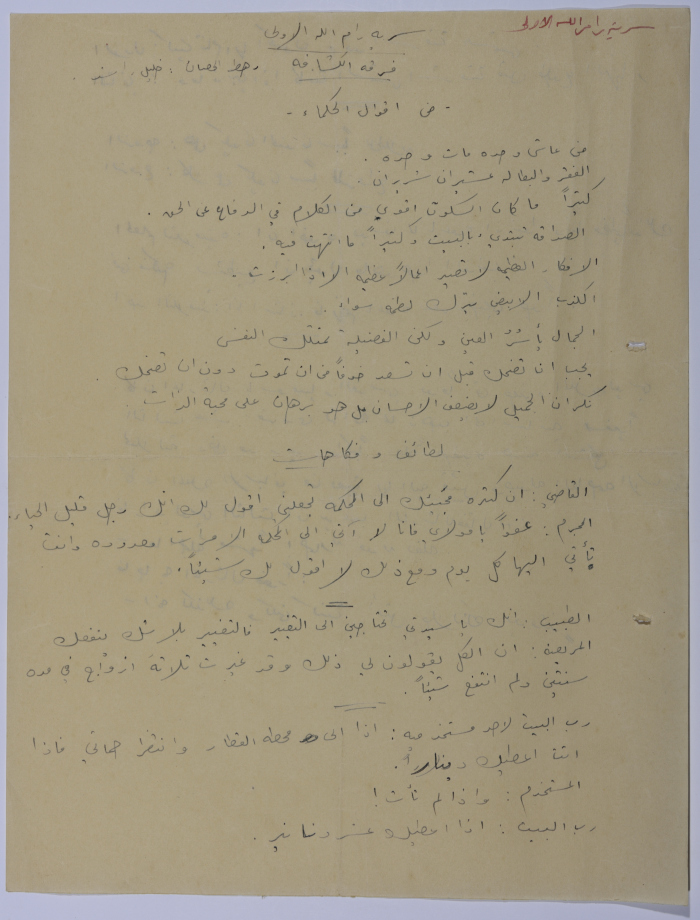 سرية رام الله الاولى
سرية رام الله الاولى
فرقة الكشافه رهط الحصان : خليل راشد .
- من اقوال الحكماء -
من عاش وحده مات وحده .
الفقر والبطاله عشيران شريران .
كثيراً ما كان السكوت اقوى من الكلام في الدفاع عن الحق .
الصداقه تبتدي بالبيت وكثيراً ما انتهت فيه .
الافكار العظيمه لا تصير اعمالاً عظيمه الا اذا ابرزت .
الكذب الابيض يترك لطخه سوداء .
الجمال يأسُرُ العين ولكن الفضيلة تمتلك النفس
يجب ان تضحك قبل ان تسعد خوفاً من ان تموت دون ان تضحك .
نكران الجميل لا يضعف الاحسان بل هو برهان على محبة الذات .
لطائف و فكاهات
القاضي : ان كثره مجيئك الى المحكمه تجعلني اقول لك انك رجل قليل الحياء .
المجرم : عفواً يا مولاي فانا لا آتي الى المحكمه الا مرات معدوده وانت
تأتي اليها كل يوم ومع ذلك لا اقول لك شيئاً .
الطبيب : انك يا سيدتي تحتاجين الى التغيير فالتغيير بلا شك ينفعك
المريضة : ان الكل يقولون لي ذلك وقد غيرت ثلاثة ازواج في مده
سنتين ولم انتفع شيئاً .
رب البيت لاحد مستخدميه : اذا الى محطه القطار وانتظر حماتي فاذا
اتت اعطيك ديناراً .
المستخدم : واذا لم تأت !
رب البيت : اذا اعطيك عشر دنانير .